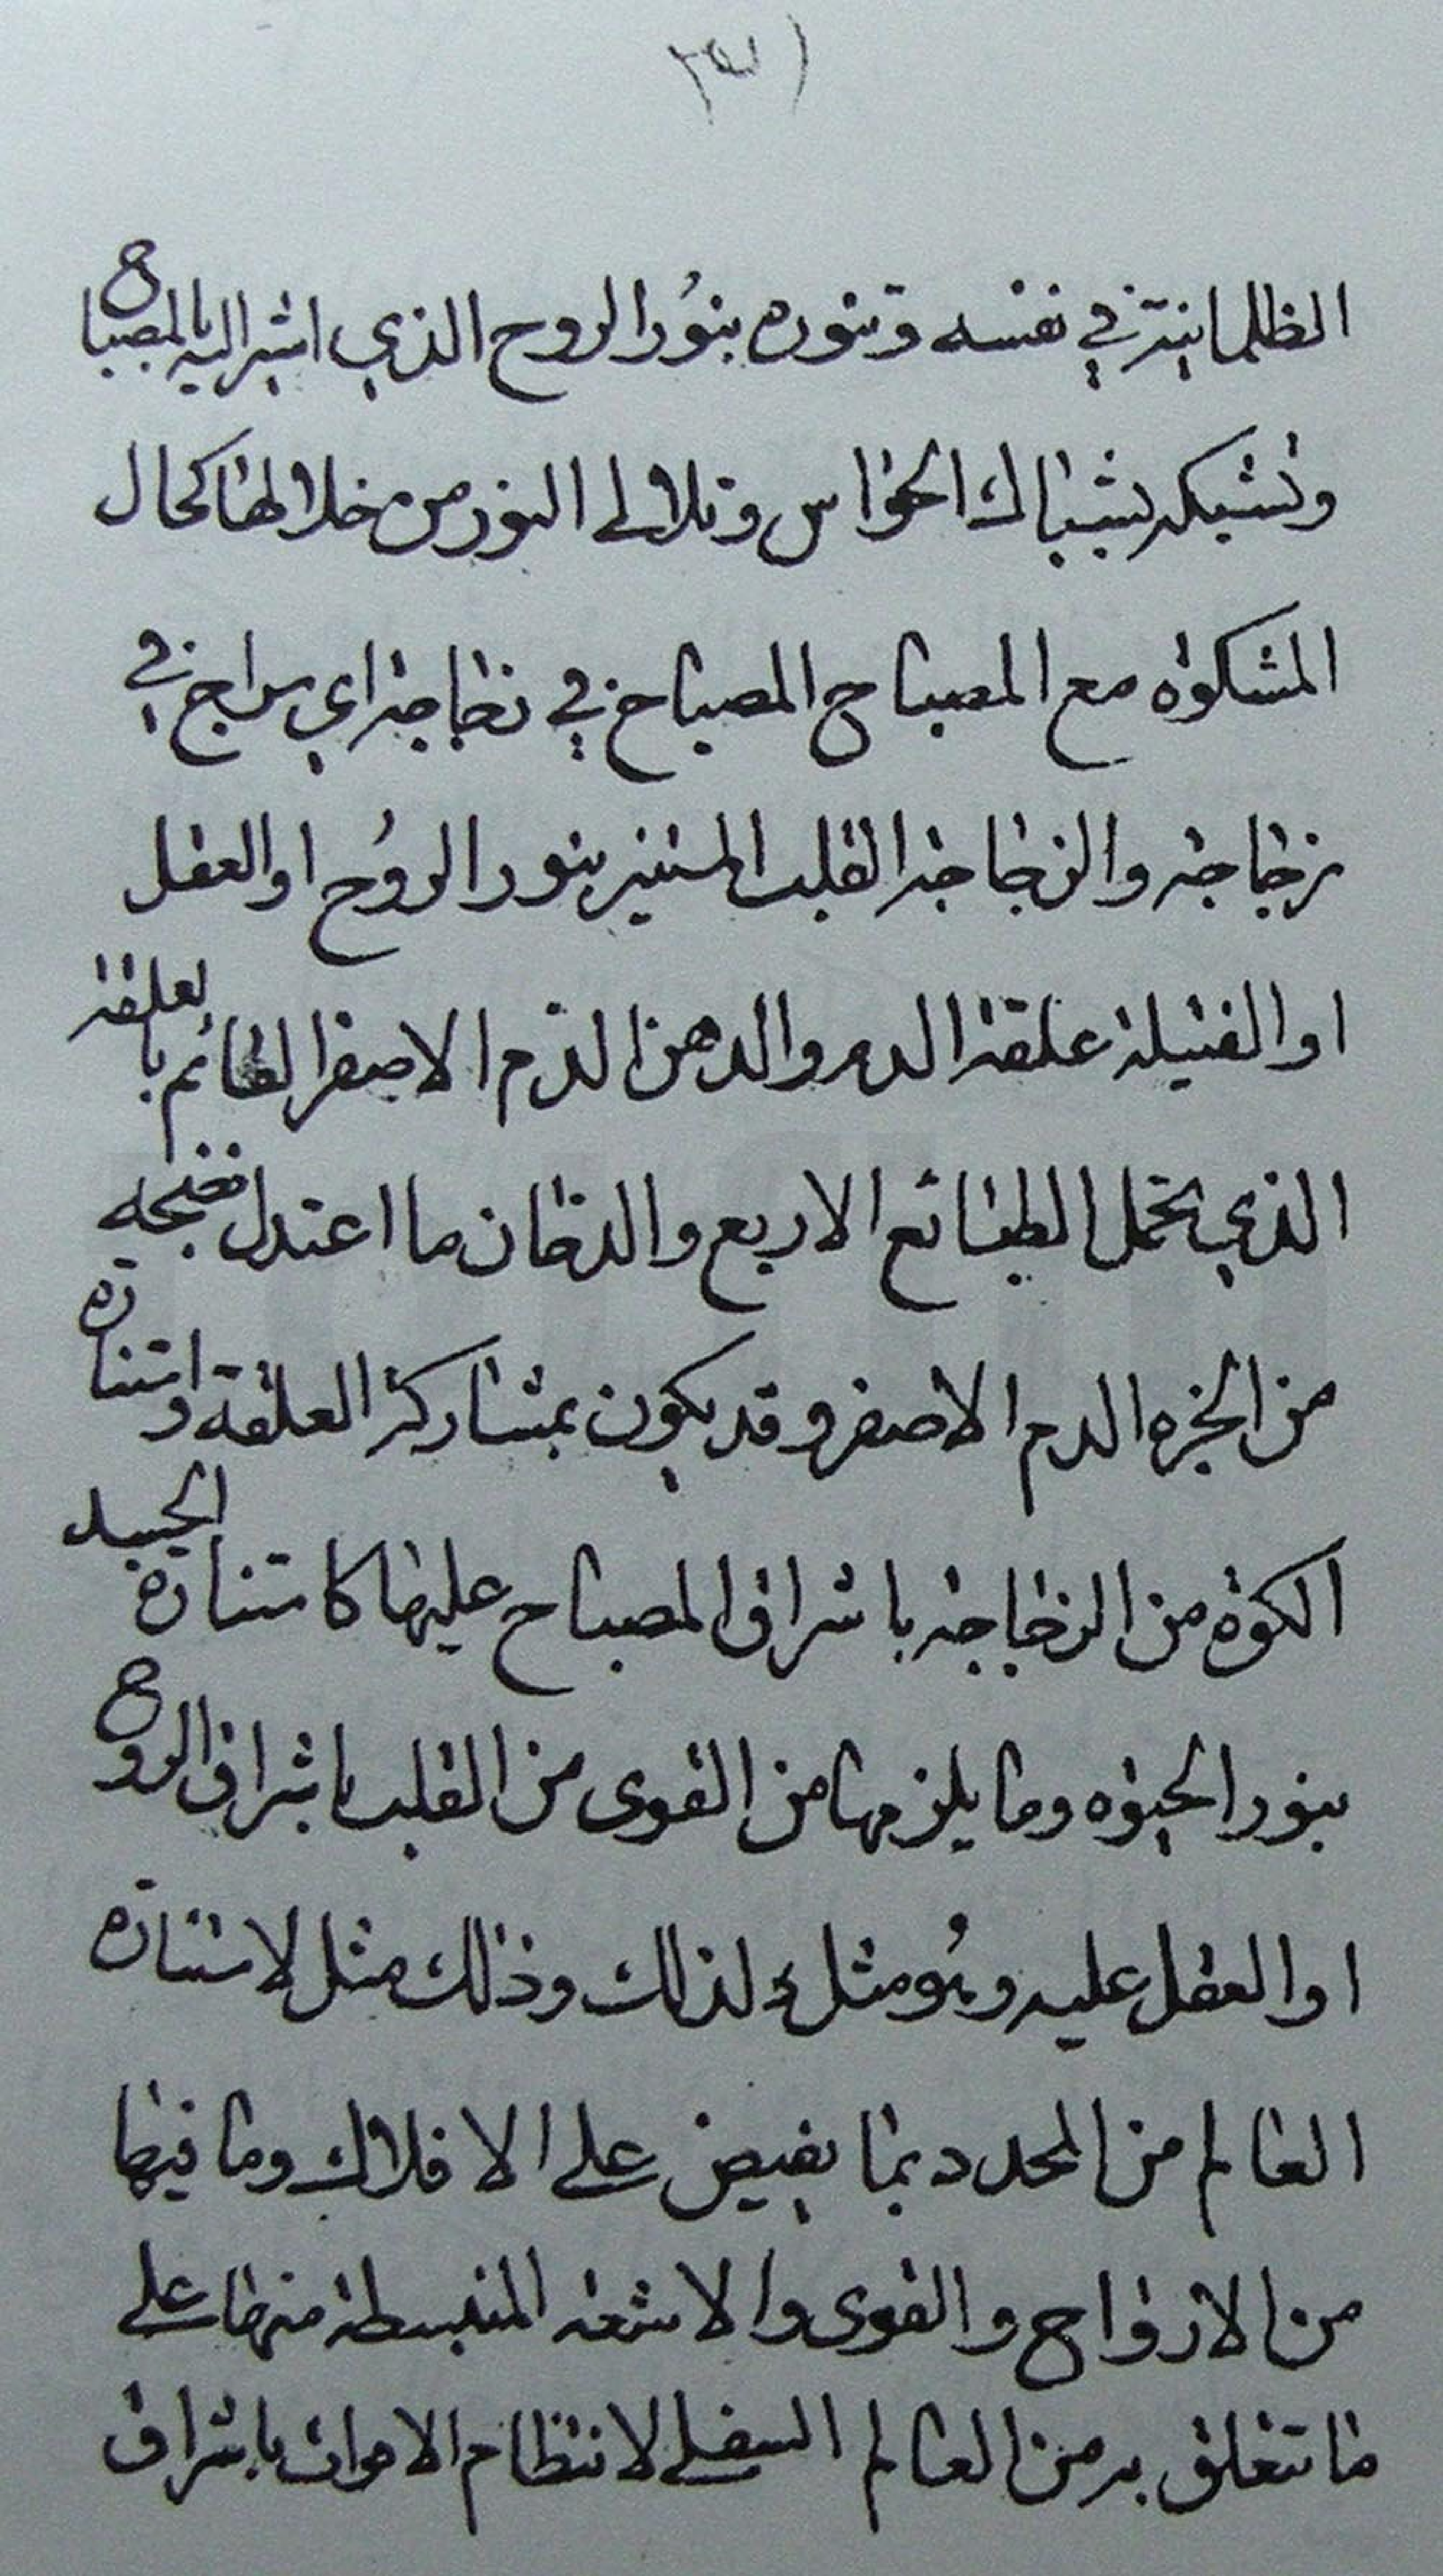 الظلمانية في نفسه وتنوره بنور الروح الذي اشير اليه بالمصباح
وتشبكه بشباك الحواس وتلالى النور من خلالها كحال
المشكوة مع المصباح المصباح في زجاجة اي سراج في
زجاجة والزجاجة القلب المستنير بنور الروح او العقل
او الفتيلة علقة الدم والدهن الدم الاصفر القائم بالعلقة
الذي يحمل الطبائع الاربع والدخان ما اعتدل نضجه
من ابخره الدم الاصفر وقد يكون بمشاركة العلقة واستنارة
الكوة من الزجاجة باشراق المصباح عليها كاستنارة الجسد
بنور الحيوه وما يلزمها من القوى من القلب باشراق الروح
او العقل عليه وهو مثل لذلك وذلك مثل لاستنارة
العالم من المحدد بما يفيض على الافلاك وما فيها
من الارواح والقوى والاشعه المنبسطة منها على
ما تتعلق به من العالم السفلي لانتظام الاموات باشراق